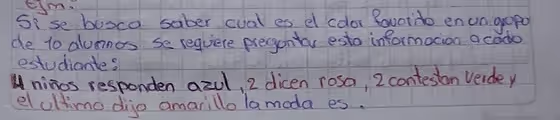 Ejm:
Si se busca saber cual es el color favorito en un grupo
de 10 alumnos se requiere preguntar esta informacion a cada
estudiante:
4 niños responden azul, 2 dicen rosa, 2 contestan verde y
el ultimo dijo amarillo la moda es.